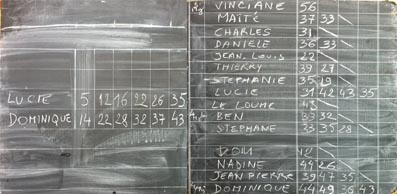 LUCIE 5 12 16 22 26 35
DOMINIQUE 14 22 28 32 37 43
VINCIANE 56
MAÏTÉ 37 33
CHARLES 31
DANIELE 36 33
JEAN-LOUIS 22
THIERRY 39 27
STEPHANIE 35 19
LUCIE 31 42 43 35
LE LOUME 43
BEN 33 32
STEPHANE 33 35 28
DOM
NADINE 44 26
JEAN PIERRE 39 47 35
DOMINIQUE 44 49 36 43